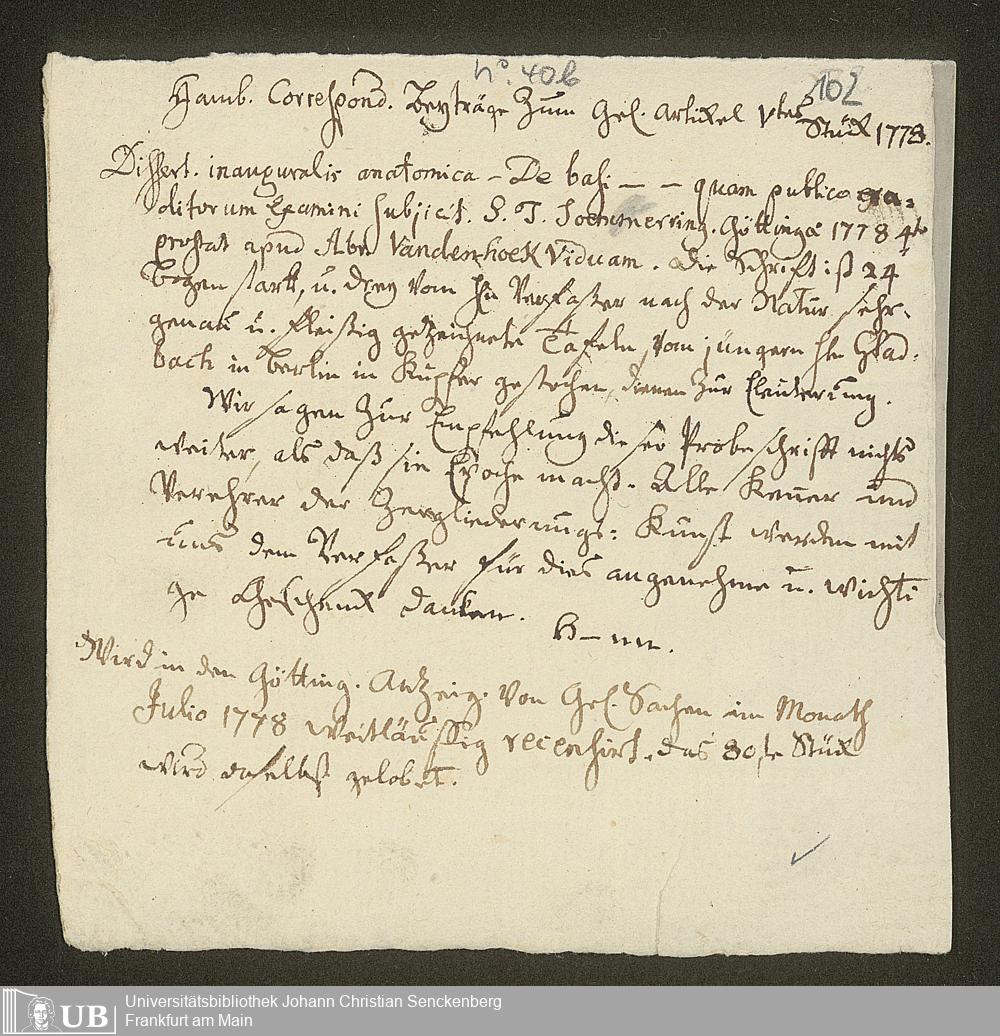 No. 40b
102
Hamb. Correspond. Beyträge zum Gel. Artikel Vtes Stück 1778.
Dissert. inauguralis anatomica – De basi – – quam publico eru=
ditorum Examini subjicit. S. T. Soemmerring. Göttingae 1778 4to
prostat apud Abr Vandenhoek Viduam. die Schrift ist 24
Bogen stark, u. drey vom Hn Verfaßer nach der Natur sehr
genau u. fleißig gezeichnete Tafeln, vom jüngern Hn Glad=
bach in Berlin in Kupfer gestochen, dienen zur Erleuterung.
Wir sagen zur Empfehlung dieser Probeschrifft nichts
weiter, als daß sie Epoche macht. Alle Kenner und
Verehrer der Zergliederungs= Kunst werden mit
uns dem Verfaßer für dies angenehme u. wichti
ge Geschenk danken. H–nn.
Wird in den Götting. Anzeig. von Gel. Sachen im Monath
Julio 1778 weitläuffig recensirt. das 80ste Stück
wird daselbst gelobet.
UB
Universitätsbibliothek Johann Christian Senckenberg
Frankfurt am Main